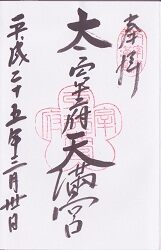 奉拝
太宰府天満宮
平成二十五年三月卅日